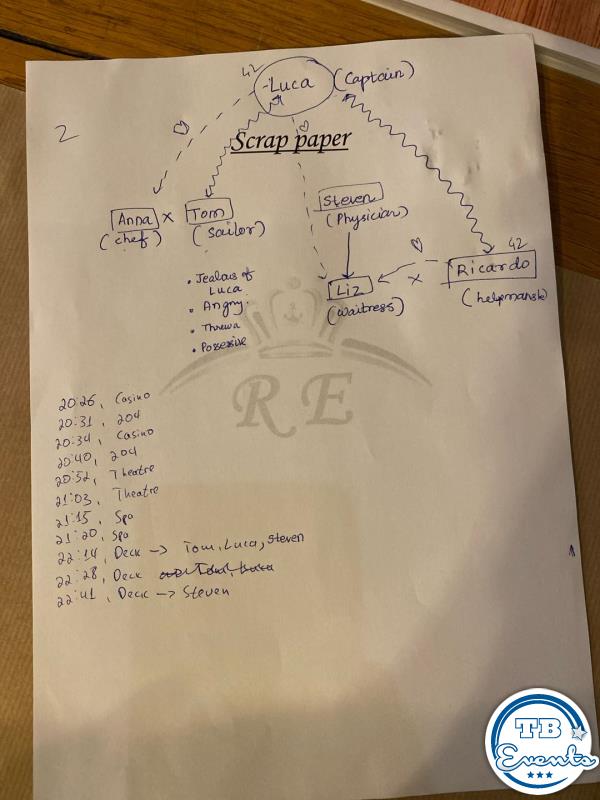 42
Luca (Captain)
2
Scrap paper
Anna x Tom
(chef) (sailor)
Steven
(Physician)
42
Ricardo
(helpmansk)
Liz x
(waitress)
• Jealous of
Luca
• Angry
• Threwa
• Possessive
R E
20:26, Casino
20:31, 204
20:34, Casino
20:40, 204
20:52, Theatre
21:03, Theatre
21:15, Spa
21:20, Spa
22:14, Deck -> Tom, Luca, Steven
22:28, Deck
22:41, Deck -> Steven
TB
Events